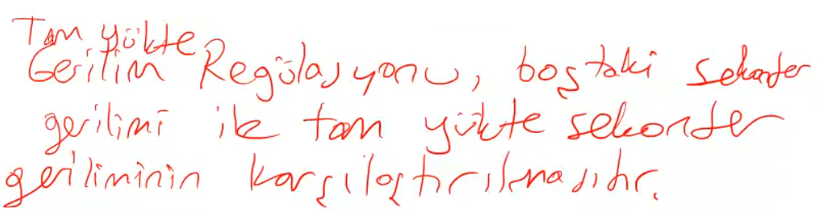 Tam yükte
Gerilim Regülasyonu, boştaki sekonder
gerilimi ile tam yükte sekonder
geriliminin karşılaştırılmasıdır.